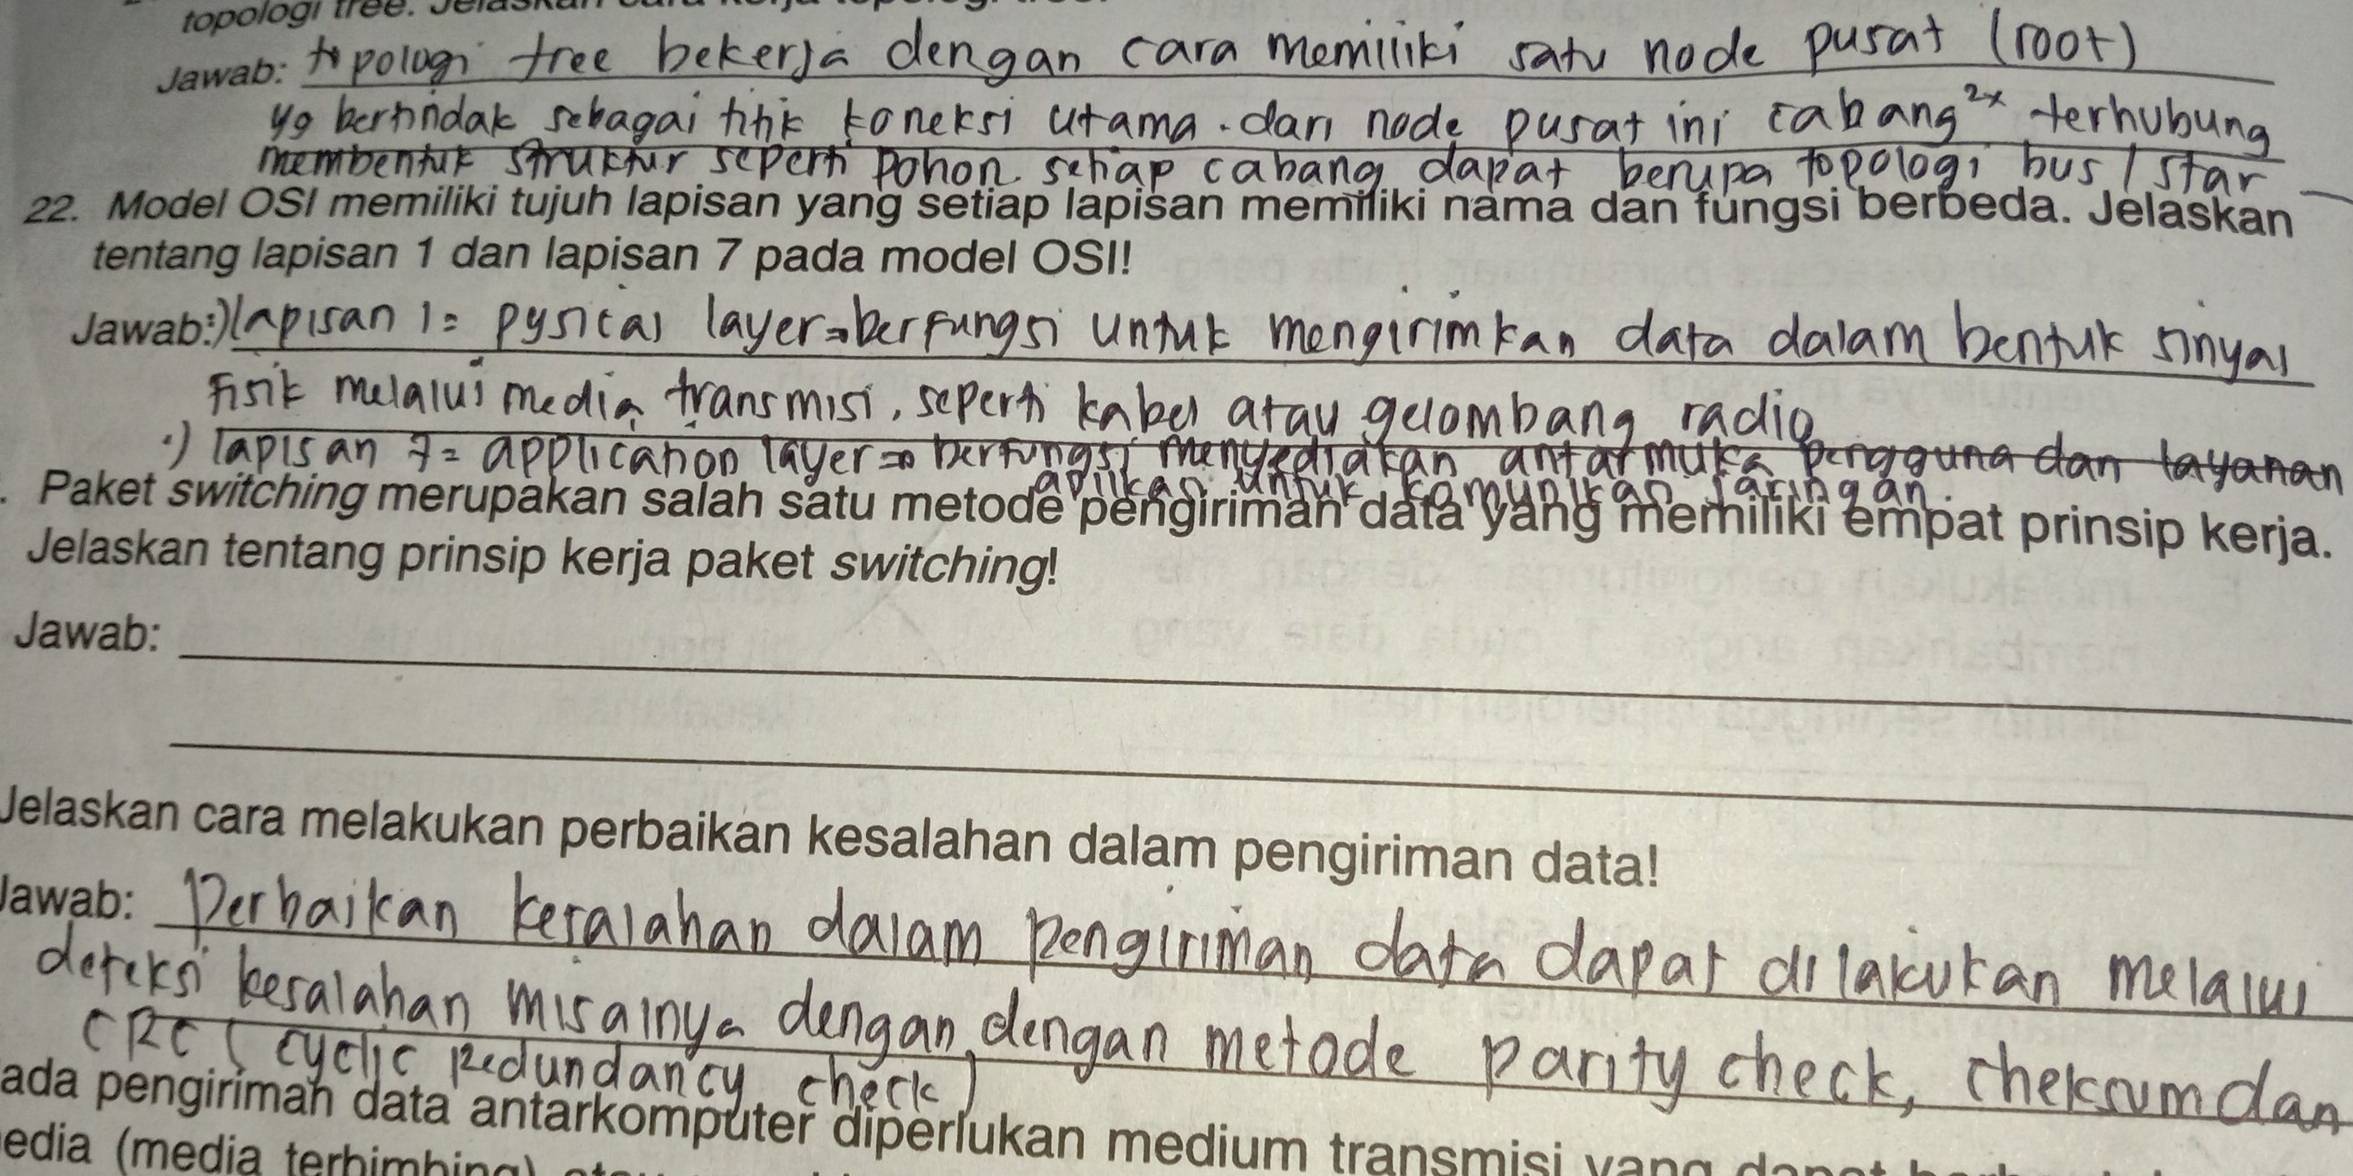 topologi tree.
Jawab: topologi tree bekerja dengan cara memiliki satu node pusat (root)
yg bertindak sebagai titik koneksi utama. dari node pusat ini cabang2x terhubung
membentuk struktur seperti pohon. setiap cabang dapat berupa topologi bus / star
22. Model OSI memiliki tujuh lapisan yang setiap lapisan memiliki nama dan fungsi berbeda. Jelaskan
tentang lapisan 1 dan lapisan 7 pada model OSI!
Jawab: ·) lapisan 1 = pysical layer => berfungsi untuk mengirimkan data dalam bentuk sinyal
fisik melalui media transmisi, seperti kabel atau gelombang radio
·) lapisan 7 = application layer => berfungsi menyediakan antarmuka pengguna dan layanan
aplikasi untuk komunikasi jaringan.
. Paket switching merupakan salah satu metode pengiriman data yang memiliki empat prinsip kerja.
Jelaskan tentang prinsip kerja paket switching!
Jawab:
Jelaskan cara melakukan perbaikan kesalahan dalam pengiriman data!
Jawab: Perbaikan kesalahan dalam pengiriman data dapat dilakukan melalui
deteksi kesalahan misalnya dengan dengan metode parity check, cheksum dan
CRC ( cyclic Redundancy check )
ada pengiriman data antarkomputer diperlukan medium transmisi yang
edia (media terbimbing)